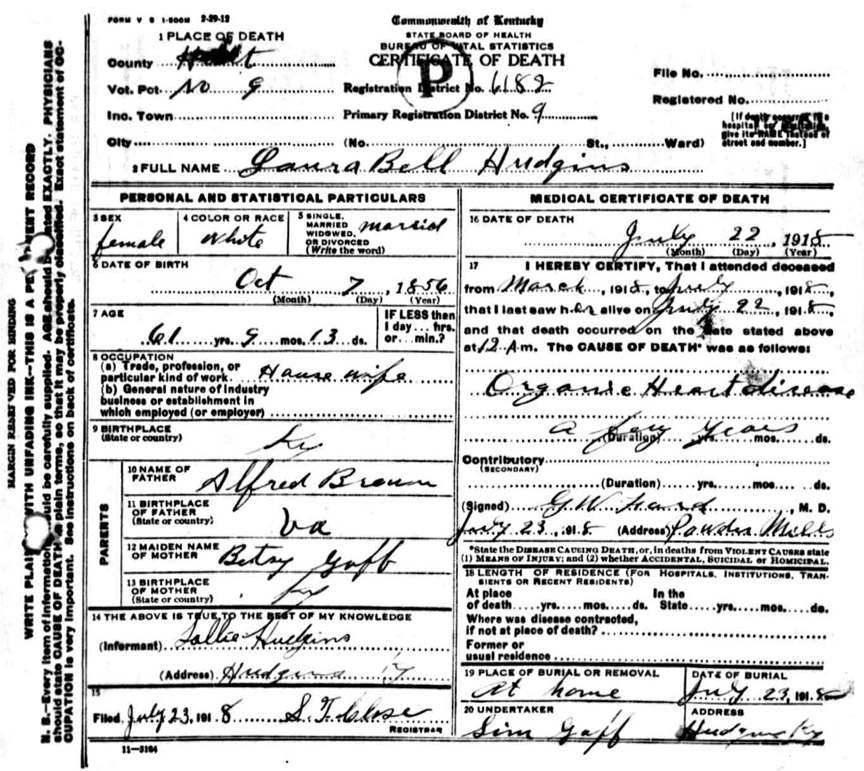 FORM V S 1-500M 2-29-12
Commonwealth of Kentucky
STATE BOARD OF HEALTH
BUREAU OF VITAL STATISTICS
CERTIFICATE OF DEATH
P
1 PLACE OF DEATH
County
Vot. Pct. No 9
Inc. Town
City
Registration District No. 6182
Primary Registration District No. 9
(No. St., Ward)
File No.
Registered No.
[If death occurred in a
hospital or
give its NAME instead of
street and number.]
2 FULL NAME Laura Bell Hudgins
PERSONAL AND STATISTICAL PARTICULARS
3 SEX
female
4 COLOR OR RACE
White
5 SINGLE,
MARRIED
WIDOWED,
OR DIVORCED
(Write the word)
married
6 DATE OF BIRTH
Oct 7, 1856
(Month) (Day) (Year)
7 AGE
61 yrs. 9 mos. 13 ds.
IF LESS than
1 day... hrs.
or... min.?
8 OCCUPATION
(a) Trade, profession, or
particular kind of work House wife
(b) General nature of industry
business or establishment in
which employed (or employer)
9 BIRTHPLACE
(State or country)
Ky
PARENTS
10 NAME OF
FATHER
Alfred Brown
11 BIRTHPLACE
OF FATHER
(State or country)
Va
12 MAIDEN NAME
OF MOTHER
Betsy Goff
13 BIRTHPLACE
OF MOTHER
(State or country)
Ky
14 THE ABOVE IS TRUE TO THE BEST OF MY KNOWLEDGE
(Informant) Hudgins
(Address) Hudgins Ky
15
Filed July 23, 1918 S. T. Close
REGISTRAR
11-3184
MEDICAL CERTIFICATE OF DEATH
16 DATE OF DEATH
July 22, 1918
(Month) (Day) (Year)
17 I HEREBY CERTIFY, That I attended deceased
from March, 1918, to July, 1918,
that I last saw her alive on July 22, 1918,
and that death occurred on the date stated above
at 12 A.m. The CAUSE OF DEATH* was as follows:
Organic Heart disease
a few years
(Duration) yrs. mos. ds.
Contributory
(SECONDARY)
(Duration) yrs. mos. ds.
(Signed) G. W., M. D.
July 23, 1918 (Address) Powder Mills
*State the DISEASE CAUSING DEATH, or, in deaths from VIOLENT CAUSES state
(1) MEANS OF INJURY; and (2) whether ACCIDENTAL, SUICIDAL or HOMICIDAL.
18 LENGTH OF RESIDENCE (FOR HOSPITALS, INSTITUTIONS, TRAN-
SIENTS OR RECENT RESIDENTS)
At place
of death yrs. mos. ds.
In the
State yrs. mos. ds.
Where was disease contracted,
if not at place of death?
Former or
usual residence
19 PLACE OF BURIAL OR REMOVAL
At home
DATE OF BURIAL
July 23, 1918
20 UNDERTAKER
Sim Goff
ADDRESS
Hudgins Ky
MARGIN RESERVED FOR BINDING
WRITE PLAINLY WITH UNFADING INK—THIS IS A PERMANENT RECORD
N. B.—Every item of information should be carefully supplied. AGE should be stated EXACTLY. PHYSICIANS
should state CAUSE OF DEATH in plain terms, so that it may be properly classified. Exact statement of OC-
CUPATION is very important. See instructions on back of certificate.